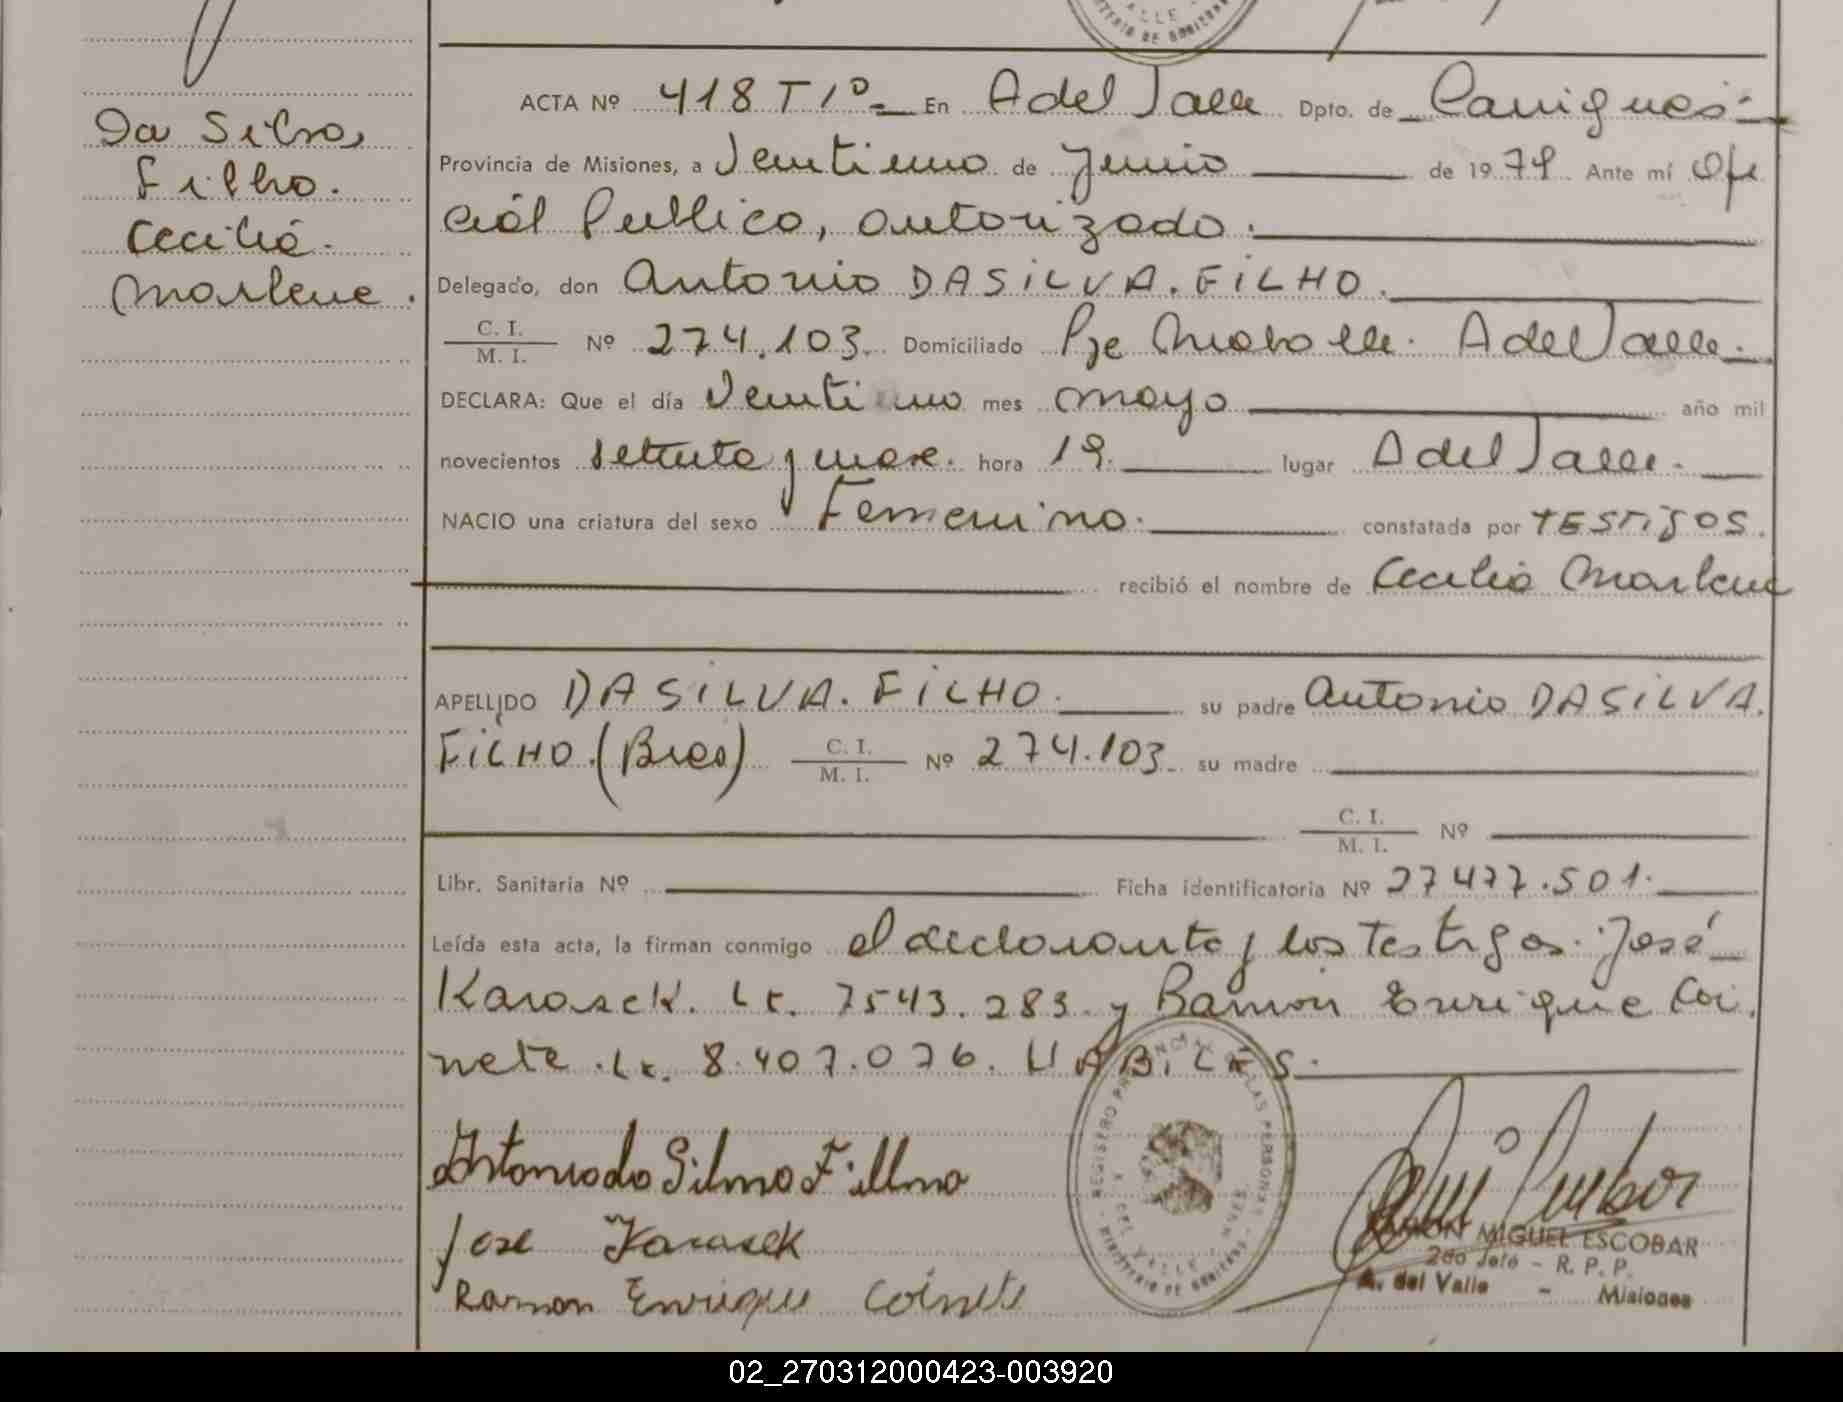 Da Silva,
Filho.
Cecilia
Marlene.
ACTA Nº 418 T 1º En A del Valle Dpto. de Cainguas
Provincia de Misiones, a Veintiuno de Junio de 1979 Ante mí Ofi
cial Publico, autorizado.
Delegado, don Antonio DA SILVA. FILHO.
C. I.
M. I. Nº 274.103. Domiciliado Pje A del Valle.
DECLARA: Que el día Veintiuno mes mayo año mil
novecientos setenta y nueve. hora 19. lugar A del Valle.
NACIO una criatura del sexo Femenino. constatada por TESTIGOS.
recibió el nombre de Cecilia Marlene
APELLIDO DA SILVA. FILHO. su padre Antonio DA SILVA.
FILHO. (Bras) C. I.
M. I. Nº 274.103 su madre
C. I.
M. I. Nº
Libr. Sanitaria Nº Ficha identificatoria Nº 27477.501.
Leída esta acta, la firman conmigo el declarante y los testigos. José
Karasek. Le. 7543.283 y Ramon Enrique Coi
nete. Le. 8.407.076. HABILES.
Antonio da Silma Fillmo
Jose Karasek
Ramon Enrique Coinete
REGISTRO PROVINCIAL DE LAS PERSONAS
MINISTERIO DE GOBIERNO
RAMON MIGUEL ESCOBAR
2do Jefe - R. P. P.
A. del Valle - Misiones
02_270312000423-003920